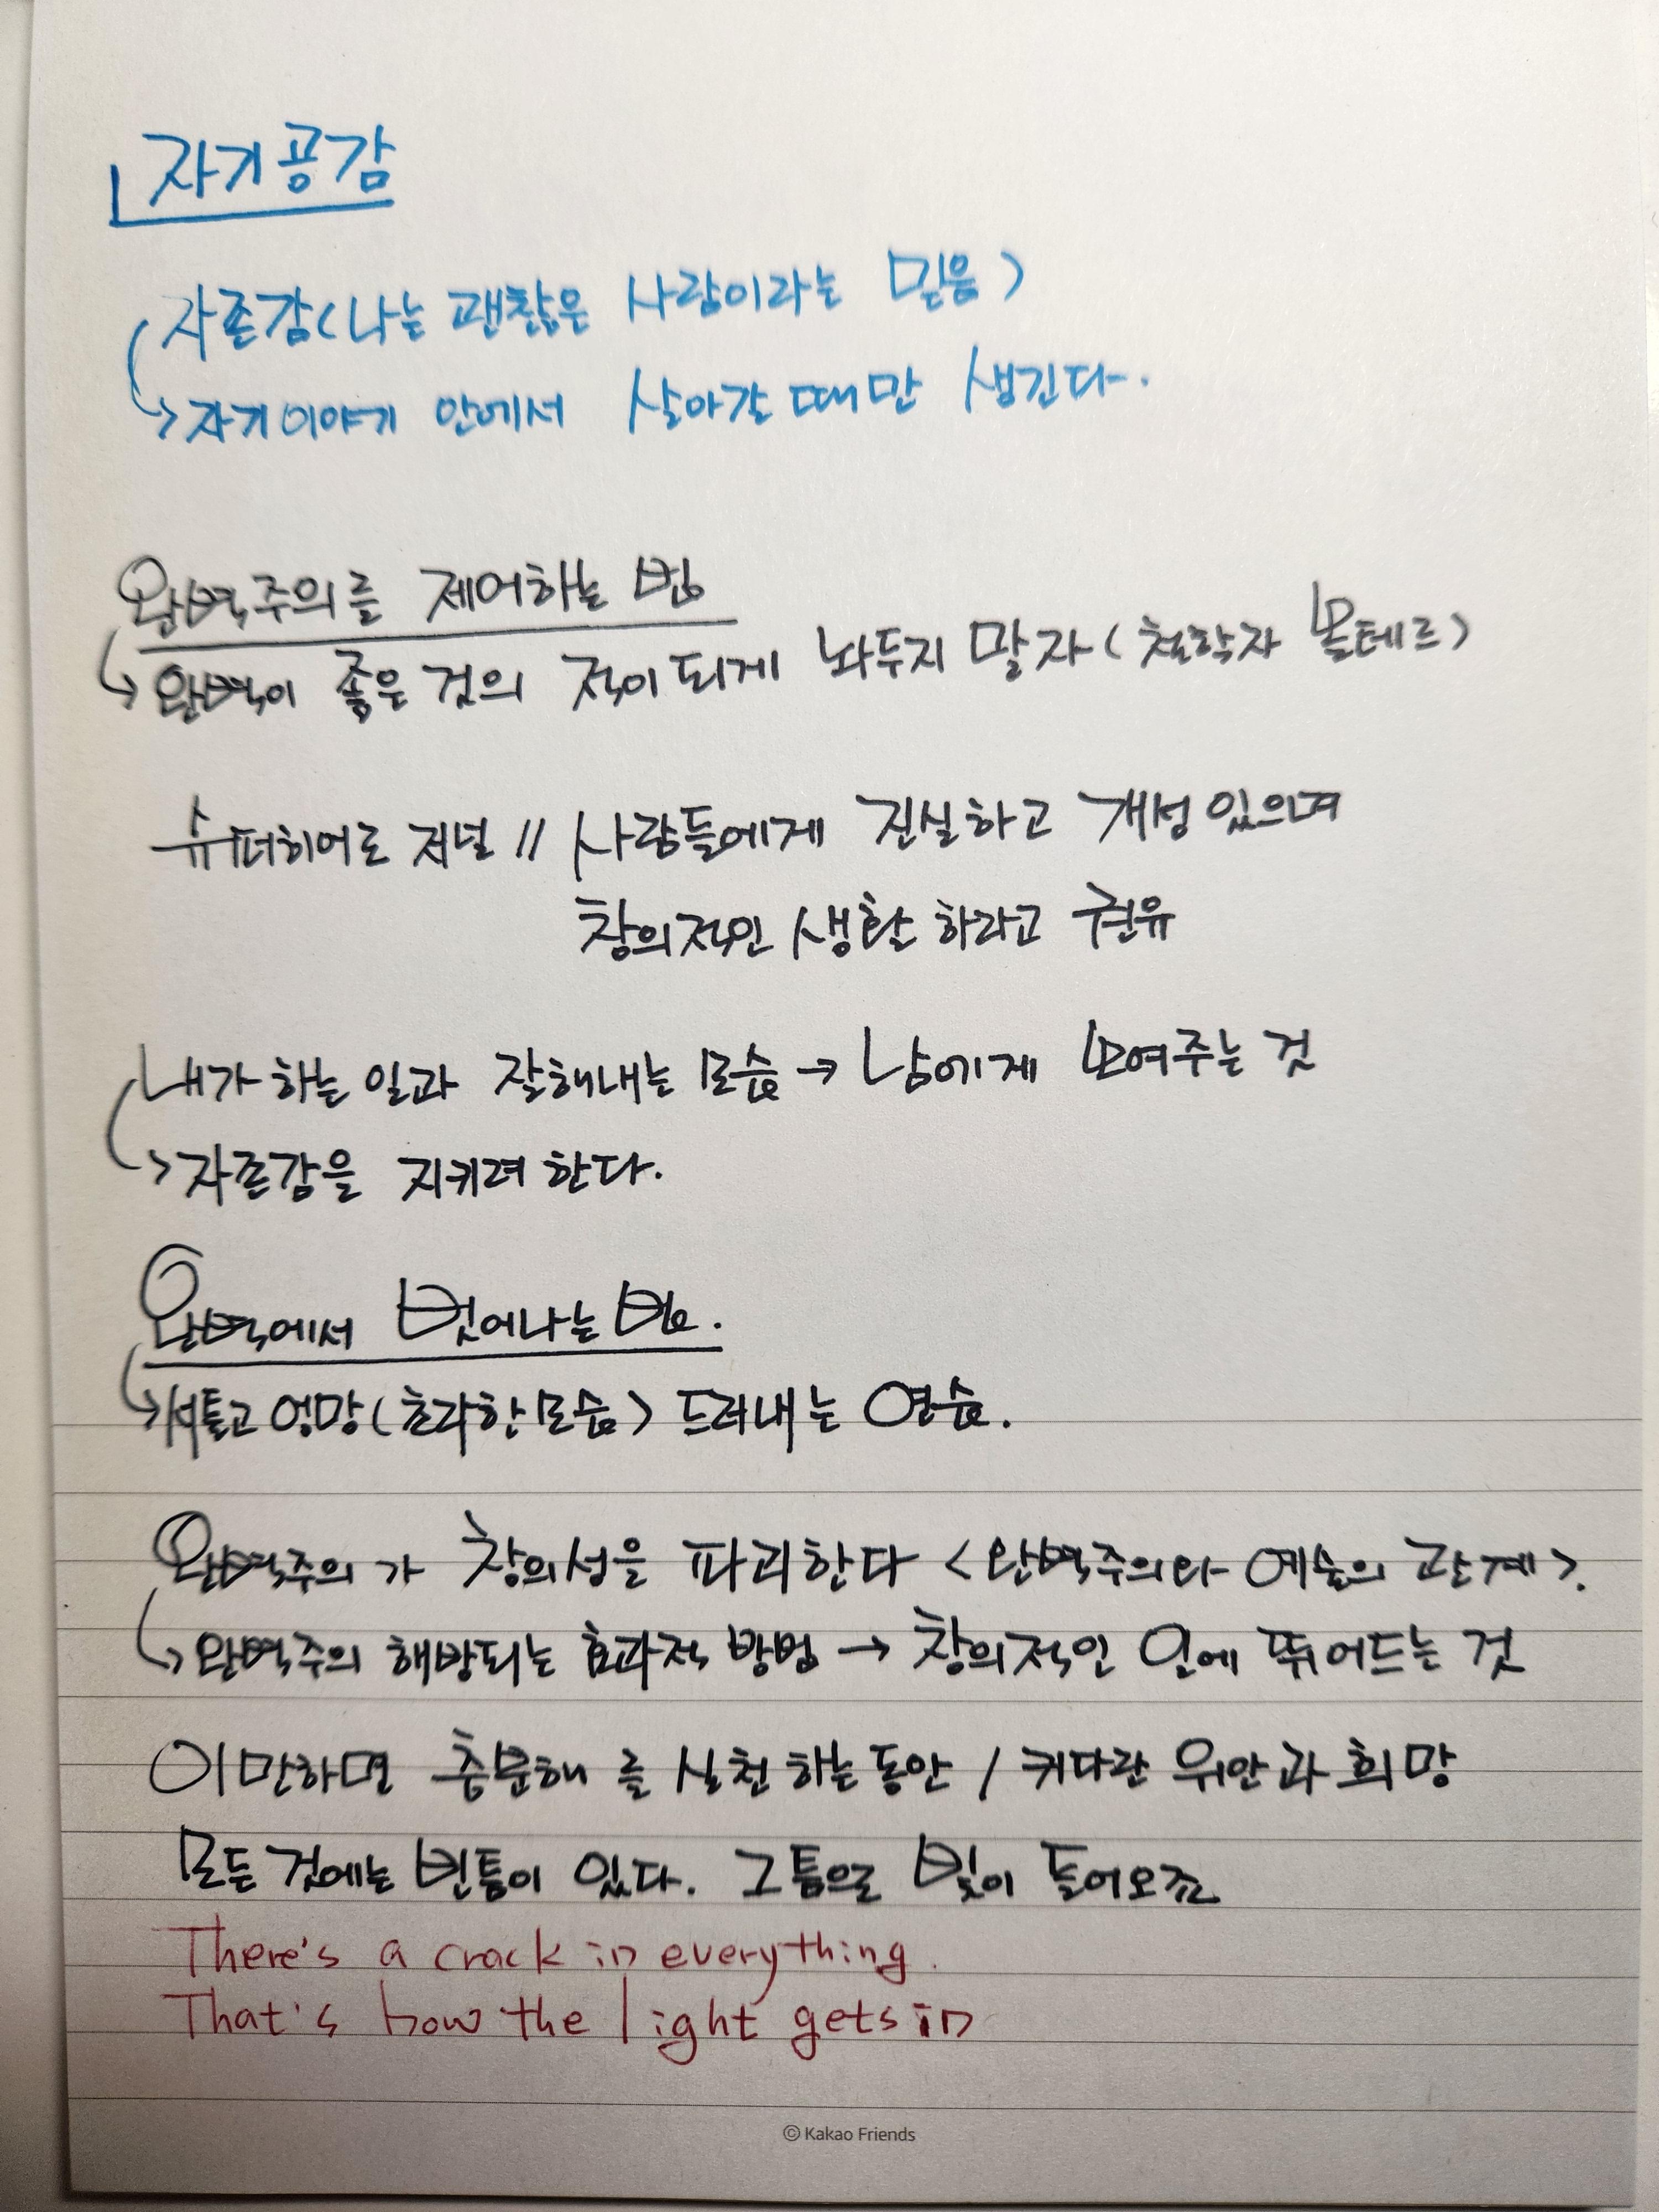 자기공감
자존감(나는 괜찮은 사람이라는 믿음)
→자기이야기 안에서 살아갈 때만 생긴다.
완벽주의를 제어하는 법
→완벽이 좋은 것의 적이 되게 놔두지 말자(철학자 볼테르)
슈퍼히어로 저널 // 사람들에게 진실하고 개성 있으며
창의적인 생활 하라고 권유
내가 하는 일과 잘해내는 모습 → 남에게 보여주는 것
→자존감을 지키려 한다.
완벽에서 벗어나는 법.
→서툴고 엉망(초라한 모습) 드러내는 연습.
완벽주의가 창의성을 파괴한다 <완벽주의와 예술의 관계>.
→완벽주의 해방되는 효과적 방법 → 창의적인 일에 뛰어드는 것
이만하면 충분해 를 실천 하는 동안 / 커다란 위안과 희망
모든 것에는 빈틈이 있다. 그 틈으로 빛이 들어오죠
There's a crack in everything.
That's how the light gets in
© Kakao Friends